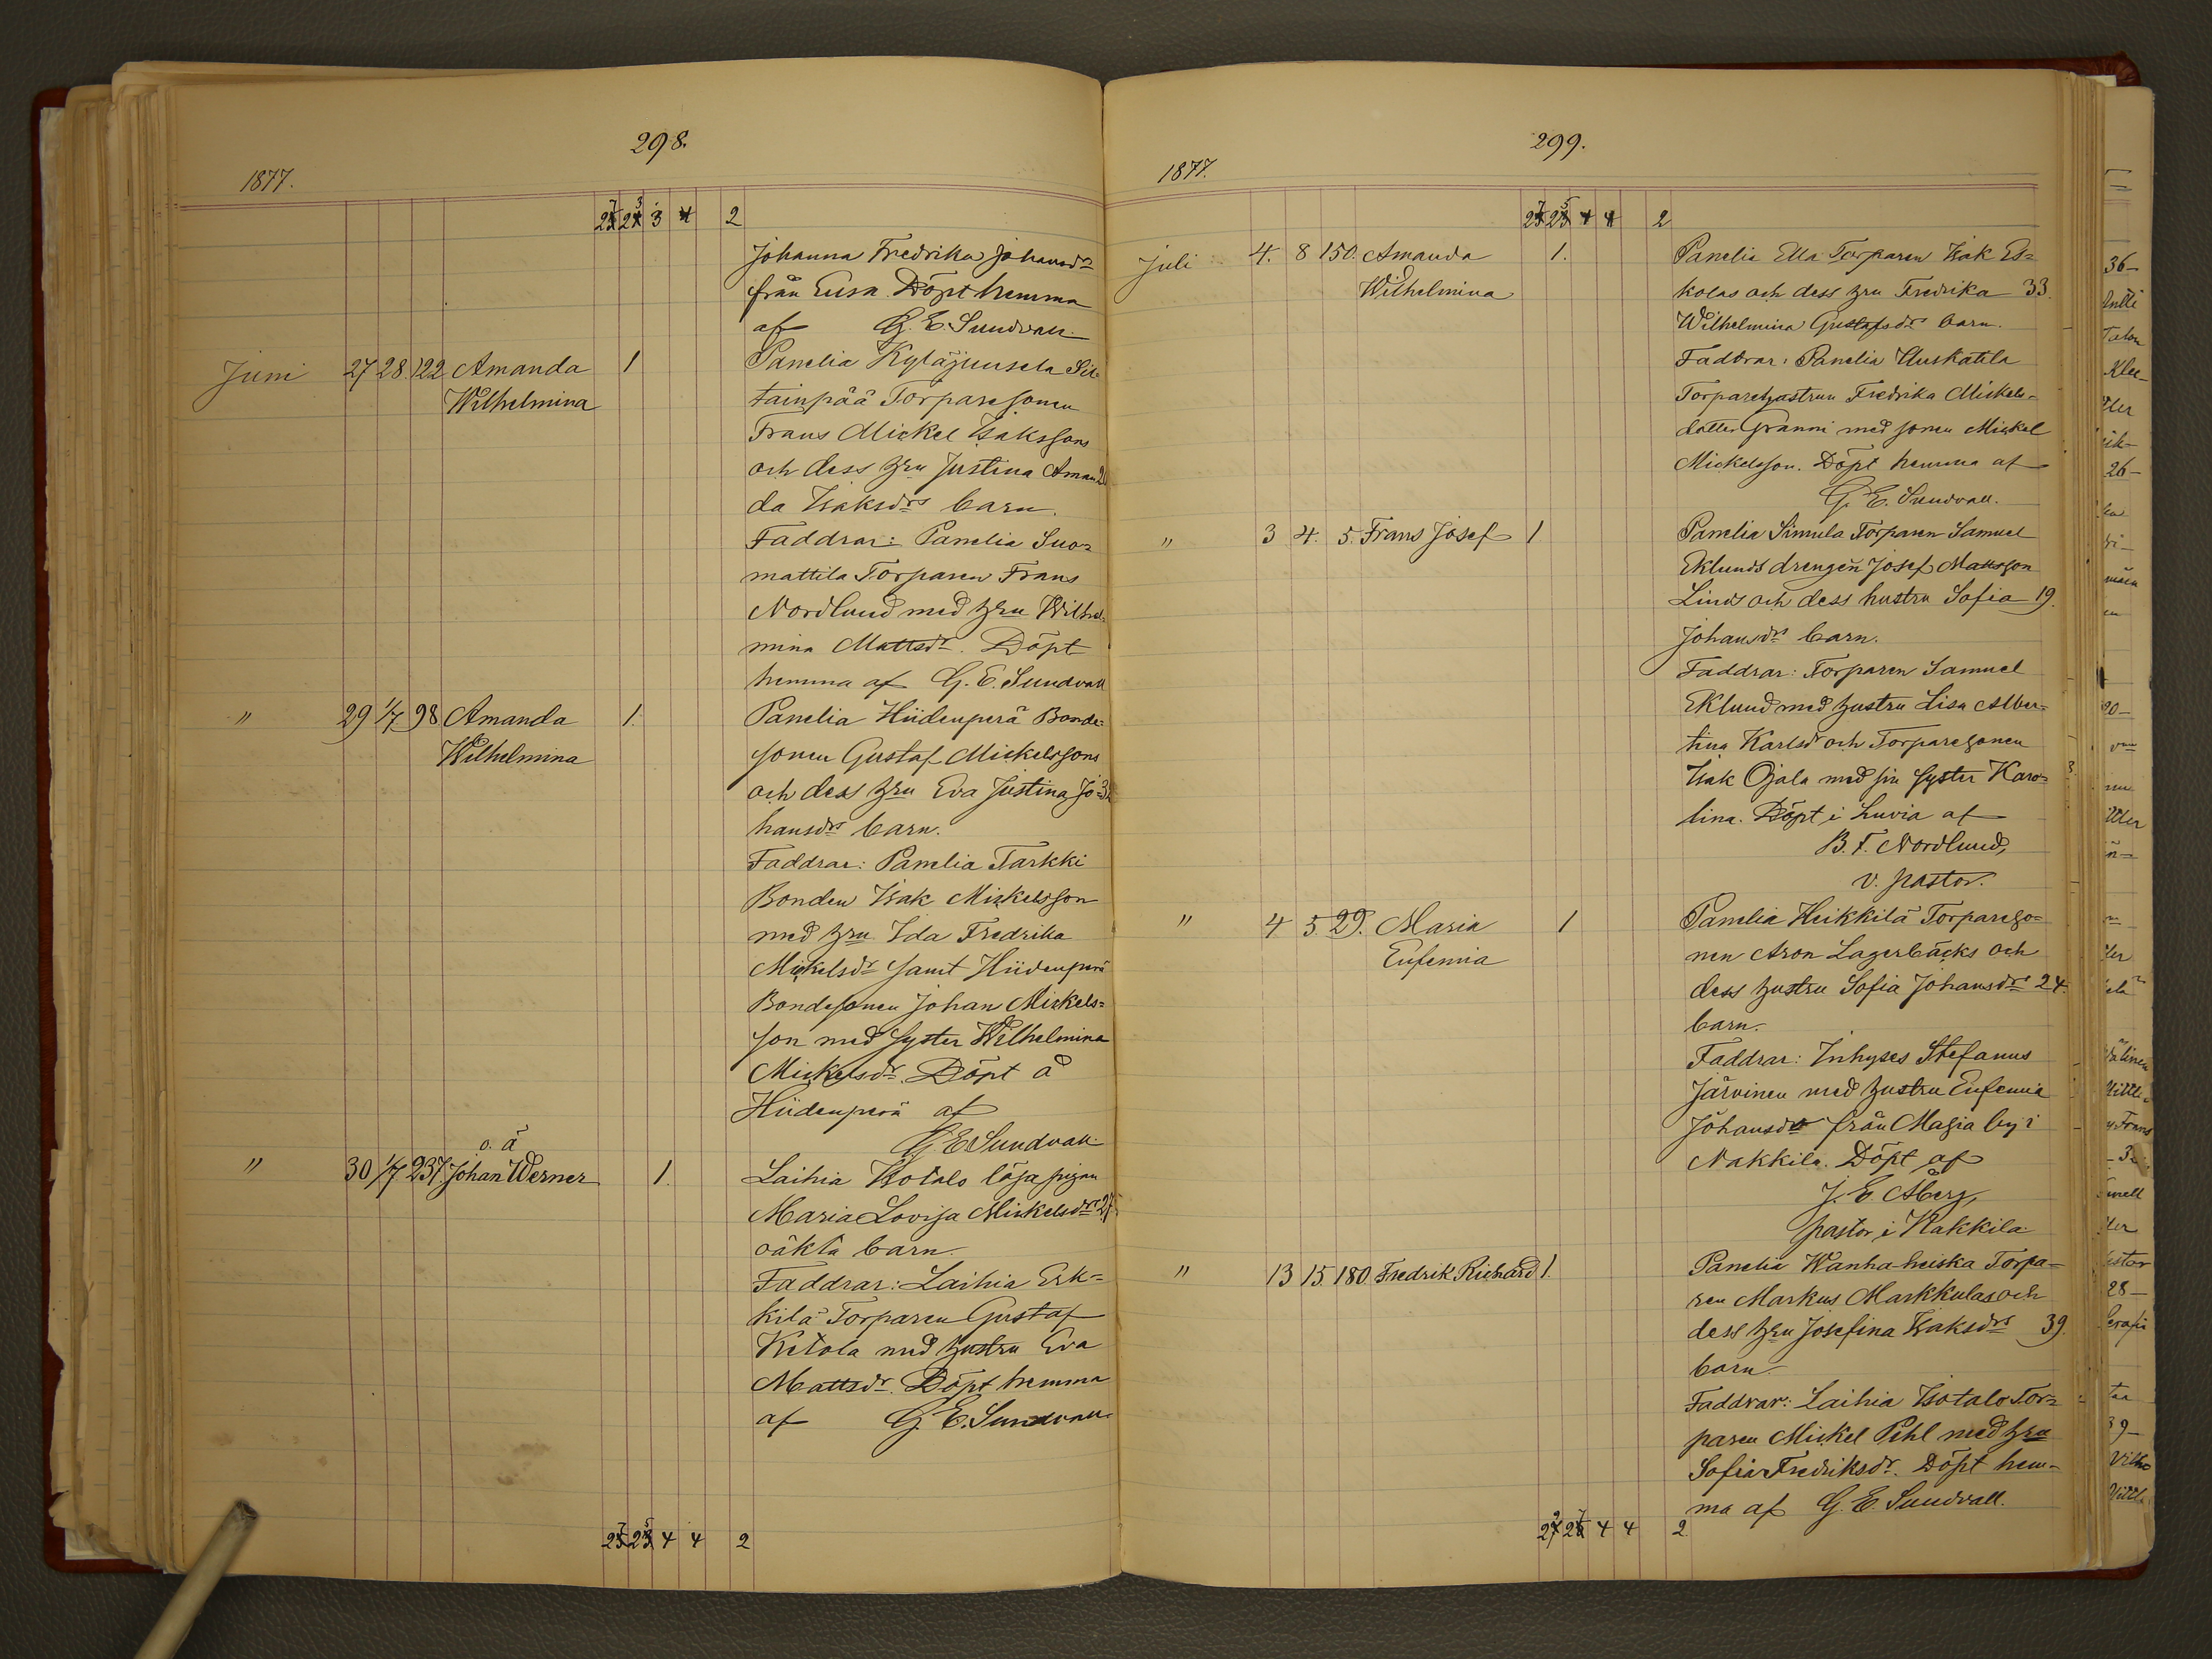 298.
1877.
3 2
Johanna Fredrika Johansdr
från Eura. Döpt hemma
af G. E. Sundvall.
Juni 27 28. 122 Amanda 1 Panelia Kyläjuusela Sil-
Wilhelmina tainpää Torparesonen
Frans Mickel Isakssons
och dess hru Justina Aman-
da Isaksdrs barn.
Faddrar: Panelia Suo-
mattila Torparen Frans
Nordlund med hru Wilhel-
mina Mattsdr. Döpt
hemma af G. E. Sundvall
" 29 1/7 98 Amanda 1. Panelia Hiidenperä Bonde-
Wilhelmina sonen Gustaf Mickelssons
och dess hru Eva Justina Jo-
hansdrs barn.
Faddrar: Panelia Tarkki
Bonden Isak Mickelsson
med hru Ida Fredrika
Mickelsdr samt Hiidenperä
Bondesonen Johan Mickels-
son med syster Wilhelmina
Mickelsdr. Döpt å
Hiidenperä af
G. E. Sundvall.
o. ä
" 30 1/7 237. Johan Werner 1. Laihia Isotalo löja pigan
Maria Lovisa Mickelsdrs 27
oäkta barn.
Faddrar: Laihia Erk-
kilä Torparen Gustaf
Ketola med hustru Eva
Mattsdr. Döpt hemma
af G. E. Sundvall.
4 4 2
299.
1877.
2
Juli 4. 8 150. Amanda 1. Panelia Ella Torparen Isak Es-
Wilhelmina kolas och dess hru Fredrika 33.
Wilhelmina Gustafsdrs barn.
Faddrar: Panelia Uuskatila
Torparehustrun Fredrika Mickels-
dotter Granni med sonen Mickel
Mickelsson. Döpt hemma af
G. E. Sundvall.
" 3 4. 5. Frans Josef 1 Panelia Simula Torparen Samuel
Eklunds drengen Josef Mattsson
Linds och dess hustru Sofia 19.
Johansdrs barn.
Faddrar: Torparen Samuel
Eklund med hustru Lisa Alber-
tina Karlsdr och Torparesonen
Isak Ojala med sin syster Karo-
lina. Döpt i Luvia af
B. F. Nordlund,
v. pastor.
" 4 5. 29. Maria 1 Panelia Heikkilä Torpareso-
Eufemia nen Aron Lagerbäcks och
dess hustru Sofia Johansdrs 24.
barn.
Faddrar: Inhyses Stefanus
Järvinen med hustru Eufemia
Johansdr från Masia by i
Nakkila. Döpt af
J. E Åberg,
pastor i Nakkila.
" 13 15. 180. Fredrik Richard 1. Panelia Wanha-heiska Torpa-
ren Markus Markkulas och
dess hru Josefina Isaksdrs 39.
barn.
Faddrar: Laihia Isotalo Tor-
paren Mickel Pihl med hru
Sofia Fredriksdr. Döpt hem-
ma af G. E. Sundvall.
4 4 2